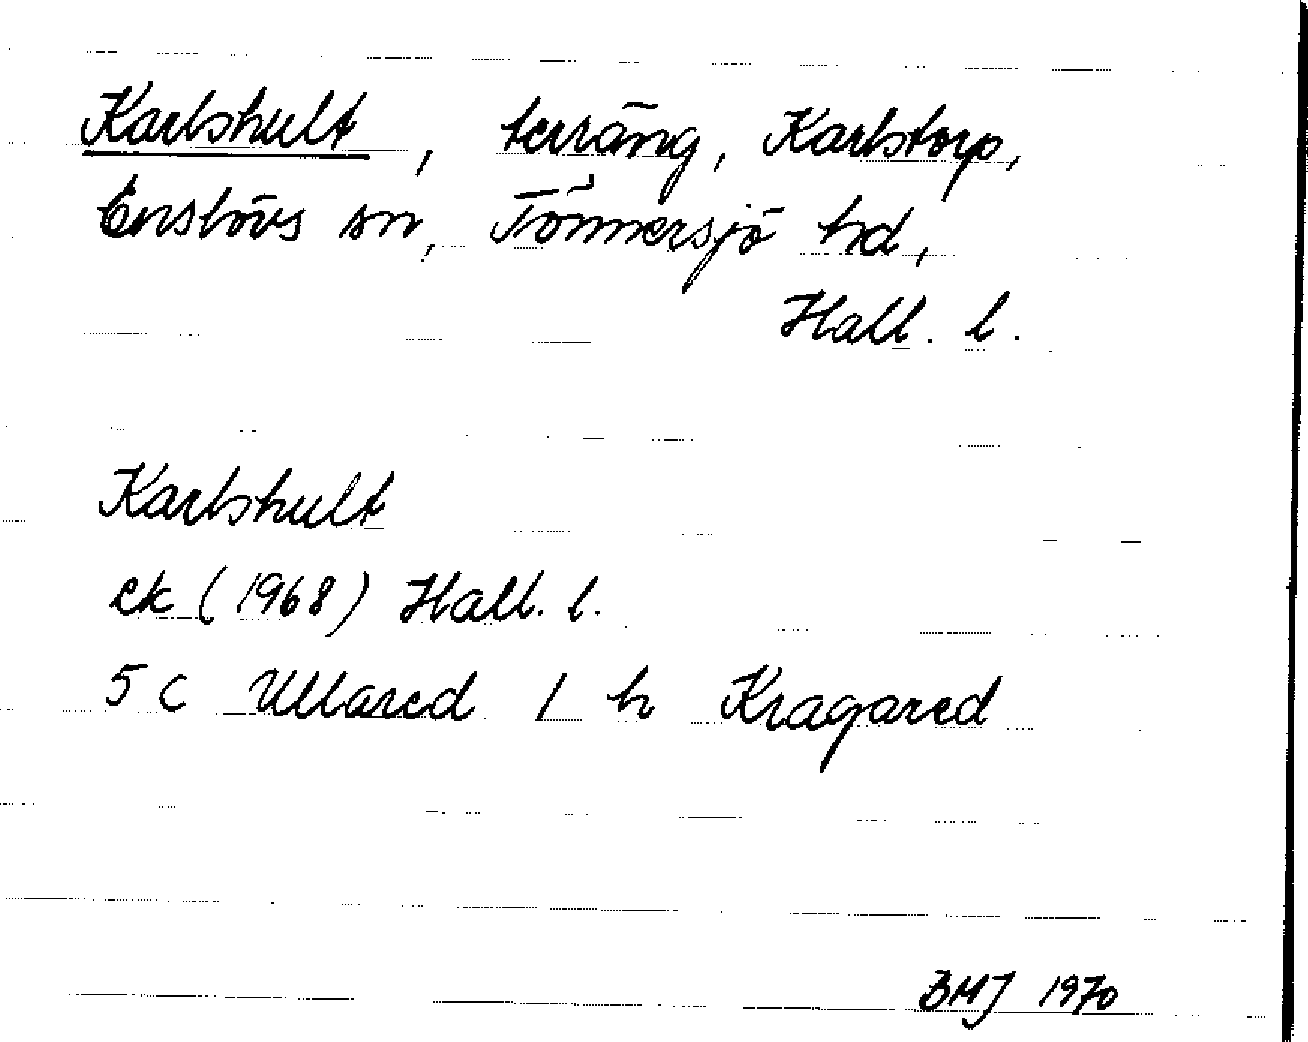 Karlshult, terräng, Karlstorp,
Enslövs sn, Tönnersjö hd,
Hall. l.
Karlshult
ek (1968) Hall. l.
5 C Ullared 1 h Kragared
BMJ 1970